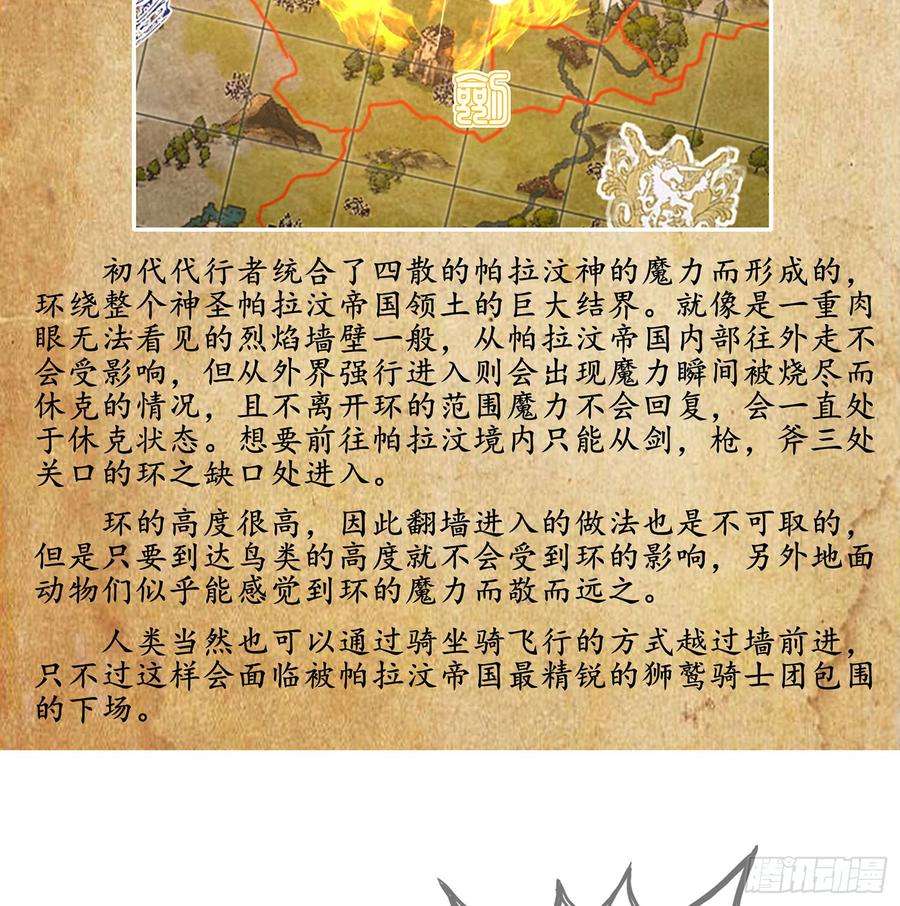 初代代行者统合了四散的帕拉汶神的魔力而形成的，
环绕整个神圣帕拉汶帝国领土的巨大结界。就像是一重肉
眼无法看见的烈焰墙壁一般，从帕拉汶帝国内部往外走不
会受影响，但从外界强行进入则会出现魔力瞬间被烧尽而
休克的情况，且不离开环的范围魔力不会回复，会一直处
于休克状态。想要前往帕拉汶境内只能从剑，枪，斧三处
关口的环之缺口处进入。
环的高度很高，因此翻墙进入的做法也是不可取的，
但是只要到达鸟类的高度就不会受到环的影响，另外地面
动物们似乎能感觉到环的魔力而敬而远之。
人类当然也可以通过骑坐骑飞行的方式越过墙前进，
只不过这样会面临被帕拉汶帝国最精锐的狮鹫骑士团包围
的下场。
腾讯动漫